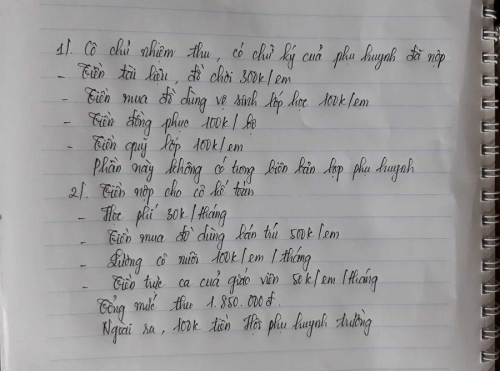 1/. Cô chủ nhiệm thu, có chữ ký của phụ huynh đã nộp
- Tiền tài liệu, đồ chơi 300k/em
- Tiền mua đồ dùng vệ sinh lớp học 100k/em
- Tiền đồng phục 100k/bộ
- Tiền quỹ lớp 100k/em
Phần này không có trong biên bản họp phụ huynh
2/. Tiền nộp cho cô kế toán
- Học phí 30k/tháng
- Tiền mua đồ dùng bán trú 500k/em
- Lương cô nuôi 100k/em/tháng
- Tiền trực ca của giáo viên 50k/em/tháng
Tổng mức thu 1.850.000đ.
Ngoài ra, 100k tiền Hội phụ huynh trường